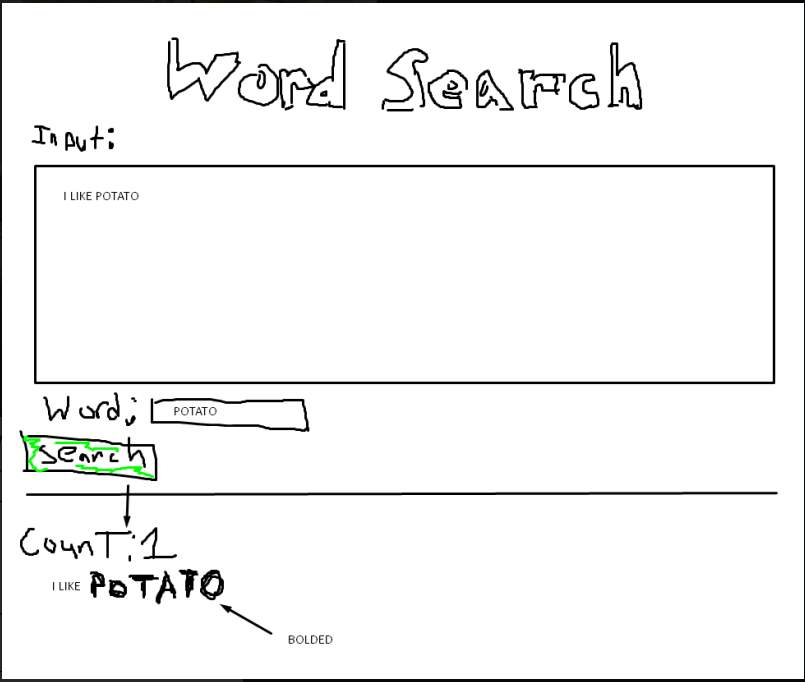 Word Search
Input:
I LIKE POTATO
Word: POTATO
Search
Count:1
I LIKE POTATO
BOLDED